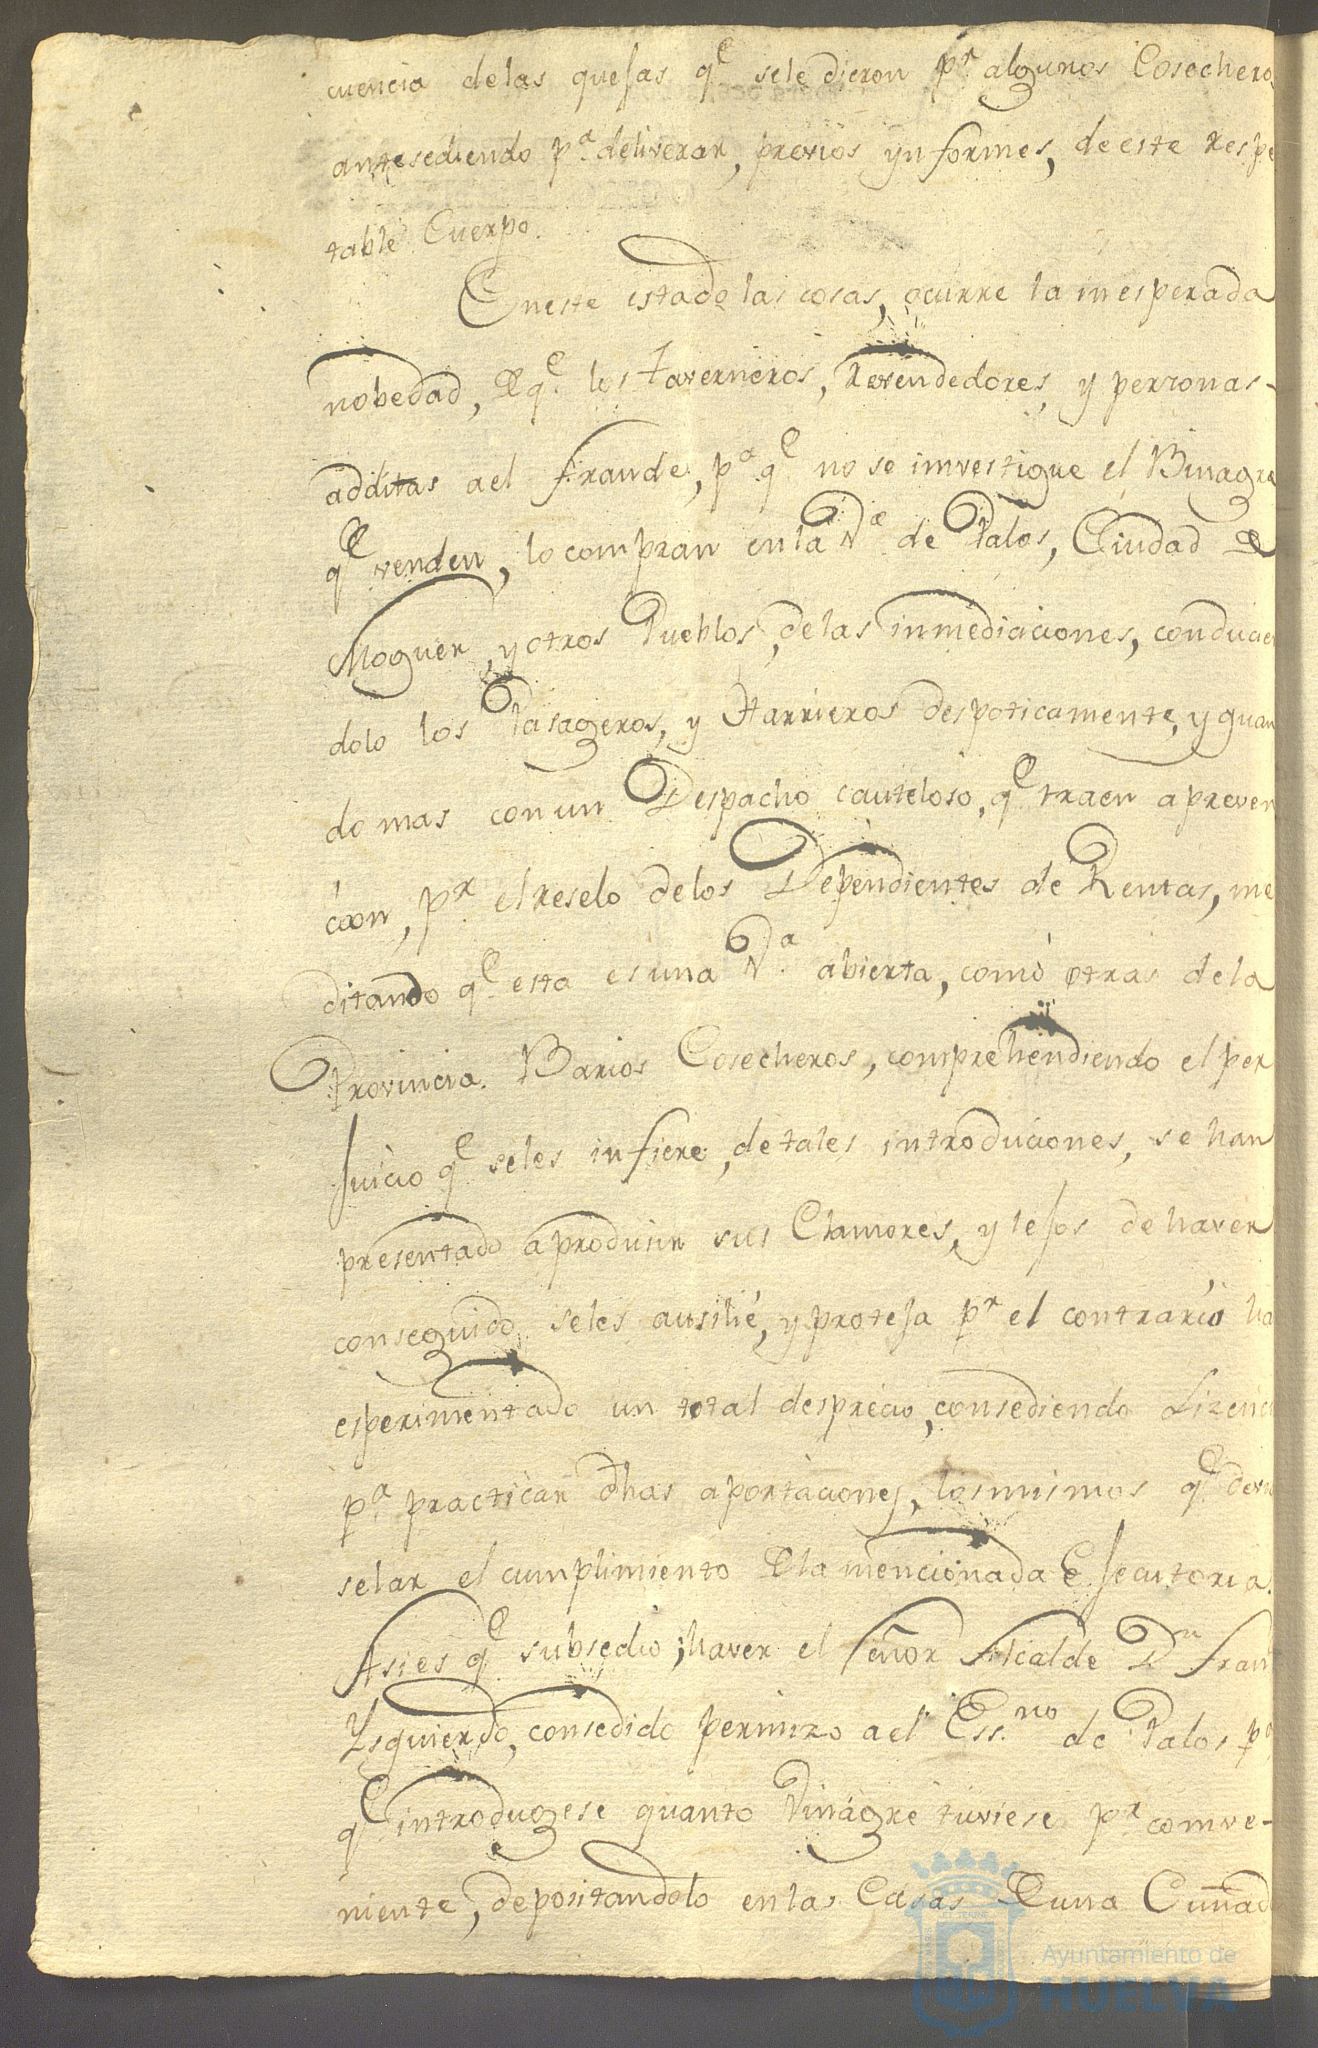 cuencia delas quejas qe. sele dieron pr. algunos Cosechero
antesediendo pa. deliverar, previos ynformes, de este respe
table Cuerpo.
Eneste estado las cosas, ocurre la inesperada
nobedad, de qe. los taverneros, revendedores, y personas-
additas ael fraude, pa. qe no se imvestigue el Binagre
qe venden, lo compran enla Va de Palos, Ciudad de
Moguer, y otros Pueblos, delas inmediaciones, conducien
dolo los Pasageros, y Harrieros despoticamente, y quan
do mas con un Despacho cauteloso, qe traen a preven
cion, pr. el reselo delos Dependientes de Rentas, me
ditando qe. esta es una Va. abierta, como otras dela
Provincia. Barios Cosecheros, comprehendiendo el per
Juicio qe. seles infiere, de tales introduciones, se han
presentado a producir sus Clamores, y lejos de haver
conseguido seles ausilie, y proteja pr. el contrario ha
esperimentado un total desprecio, consediendo Lizenci
pa. practicar dhas aportaciones, los mismos qe. devi
selar el cumplimiento dela mencionada Ejecutoria.
Asi es qe subsedio, haver el señor Alcalde Dn fran
Yzquierdo, consedido permizo ael Ess.no de Palos pa
qe introdugese quanto Vinagre tuviese pr. comve-
niente, depositandolo enlas Casas de una Cuñad
Ayuntamiento de
HUELVA